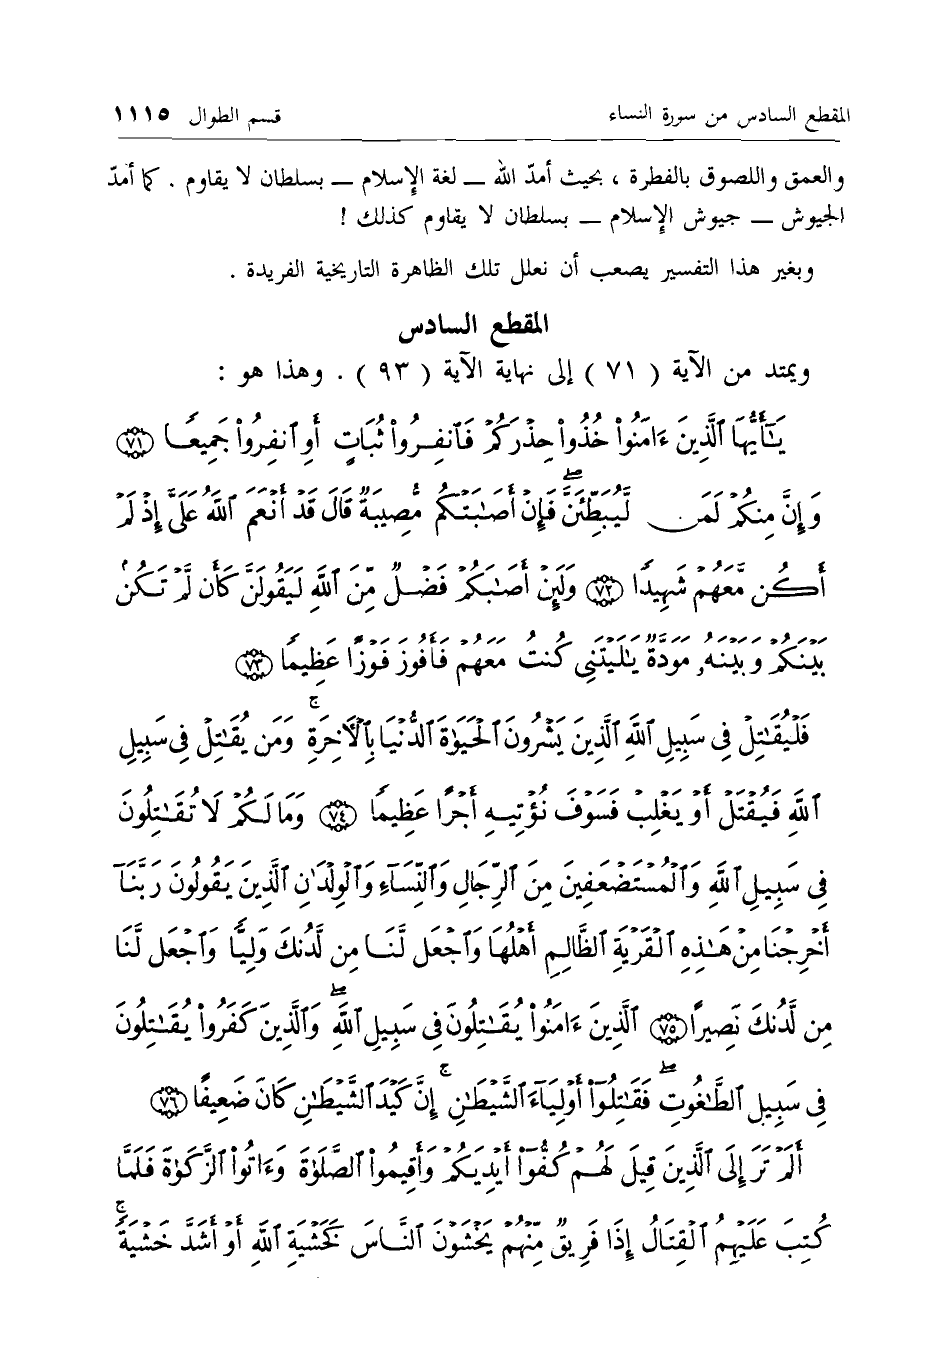 المقطع السادس من سورة النساء قسم الطوال ١١١٥
والعمق واللصوق بالفطرة ، بحيث أمدّ الله ــ لغة الإسلام ــ بسلطان لا يقاوم . كما أمدّ
الجيوش ــ جيوش الإسلام ــ بسلطان لا يقاوم كذلك !
وبغير هذا التفسير يصعب أن نعلل تلك الظاهرة التاريخية الفريدة .
المقطع السادس
ويمتد من الآية ( ٧١ ) إلى نهاية الآية ( ٩٣ ) . وهذا هو :
يَٰٓأَيُّهَا ٱلَّذِينَ ءَامَنُوا۟ خُذُوا۟ حِذْرَكُمْ فَٱنفِرُوا۟ ثُبَاتٍ أَوِ ٱنفِرُوا۟ جَمِيعًا ﴿٧١﴾
وَإِنَّ مِنكُمْ لَمَن لَّيُبَطِّئَنَّۖ فَإِنْ أَصَٰبَتْكُم مُّصِيبَةٌ قَالَ قَدْ أَنْعَمَ ٱللَّهُ عَلَىَّ إِذْ لَمْ
أَكُن مَّعَهُمْ شَهِيدًا ﴿٧٢﴾ وَلَئِنْ أَصَٰبَكُمْ فَضْلٌ مِّنَ ٱللَّهِ لَيَقُولَنَّ كَأَن لَّمْ تَكُنۢ
بَيْنَكُمْ وَبَيْنَهُۥ مَوَدَّةٌ يَٰلَيْتَنِى كُنتُ مَعَهُمْ فَأَفُوزَ فَوْزًا عَظِيمًا ﴿٧٣﴾
فَلْيُقَٰتِلْ فِى سَبِيلِ ٱللَّهِ ٱلَّذِينَ يَشْرُونَ ٱلْحَيَوٰةَ ٱلدُّنْيَا بِٱلْأٓخِرَةِۚ وَمَن يُقَٰتِلْ فِى سَبِيلِ
ٱللَّهِ فَيُقْتَلْ أَوْ يَغْلِبْ فَسَوْفَ نُؤْتِيهِ أَجْرًا عَظِيمًا ﴿٧٤﴾ وَمَا لَكُمْ لَا تُقَٰتِلُونَ
فِى سَبِيلِ ٱللَّهِ وَٱلْمُسْتَضْعَفِينَ مِنَ ٱلرِّجَالِ وَٱلنِّسَآءِ وَٱلْوِلْدَٰنِ ٱلَّذِينَ يَقُولُونَ رَبَّنَآ
أَخْرِجْنَا مِنْ هَٰذِهِ ٱلْقَرْيَةِ ٱلظَّالِمِ أَهْلُهَا وَٱجْعَل لَّنَا مِن لَّدُنكَ وَلِيًّا وَٱجْعَل لَّنَا
مِن لَّدُنكَ نَصِيرًا ﴿٧٥﴾ ٱلَّذِينَ ءَامَنُوا۟ يُقَٰتِلُونَ فِى سَبِيلِ ٱللَّهِۖ وَٱلَّذِينَ كَفَرُوا۟ يُقَٰتِلُونَ
فِى سَبِيلِ ٱلطَّٰغُوتِۖ فَقَٰتِلُوٓا۟ أَوْلِيَآءَ ٱلشَّيْطَٰنِۚ إِنَّ كَيْدَ ٱلشَّيْطَٰنِ كَانَ ضَعِيفًا ﴿٧٦﴾
أَلَمْ تَرَ إِلَى ٱلَّذِينَ قِيلَ لَهُمْ كُفُّوٓا۟ أَيْدِيَكُمْ وَأَقِيمُوا۟ ٱلصَّلَوٰةَ وَءَاتُوا۟ ٱلزَّكَوٰةَ فَلَمَّا
كُتِبَ عَلَيْهِمُ ٱلْقِتَالُ إِذَا فَرِيقٌ مِّنْهُمْ يَخْشَوْنَ ٱلنَّاسَ كَخَشْيَةِ ٱللَّهِ أَوْ أَشَدَّ خَشْيَةًۚ